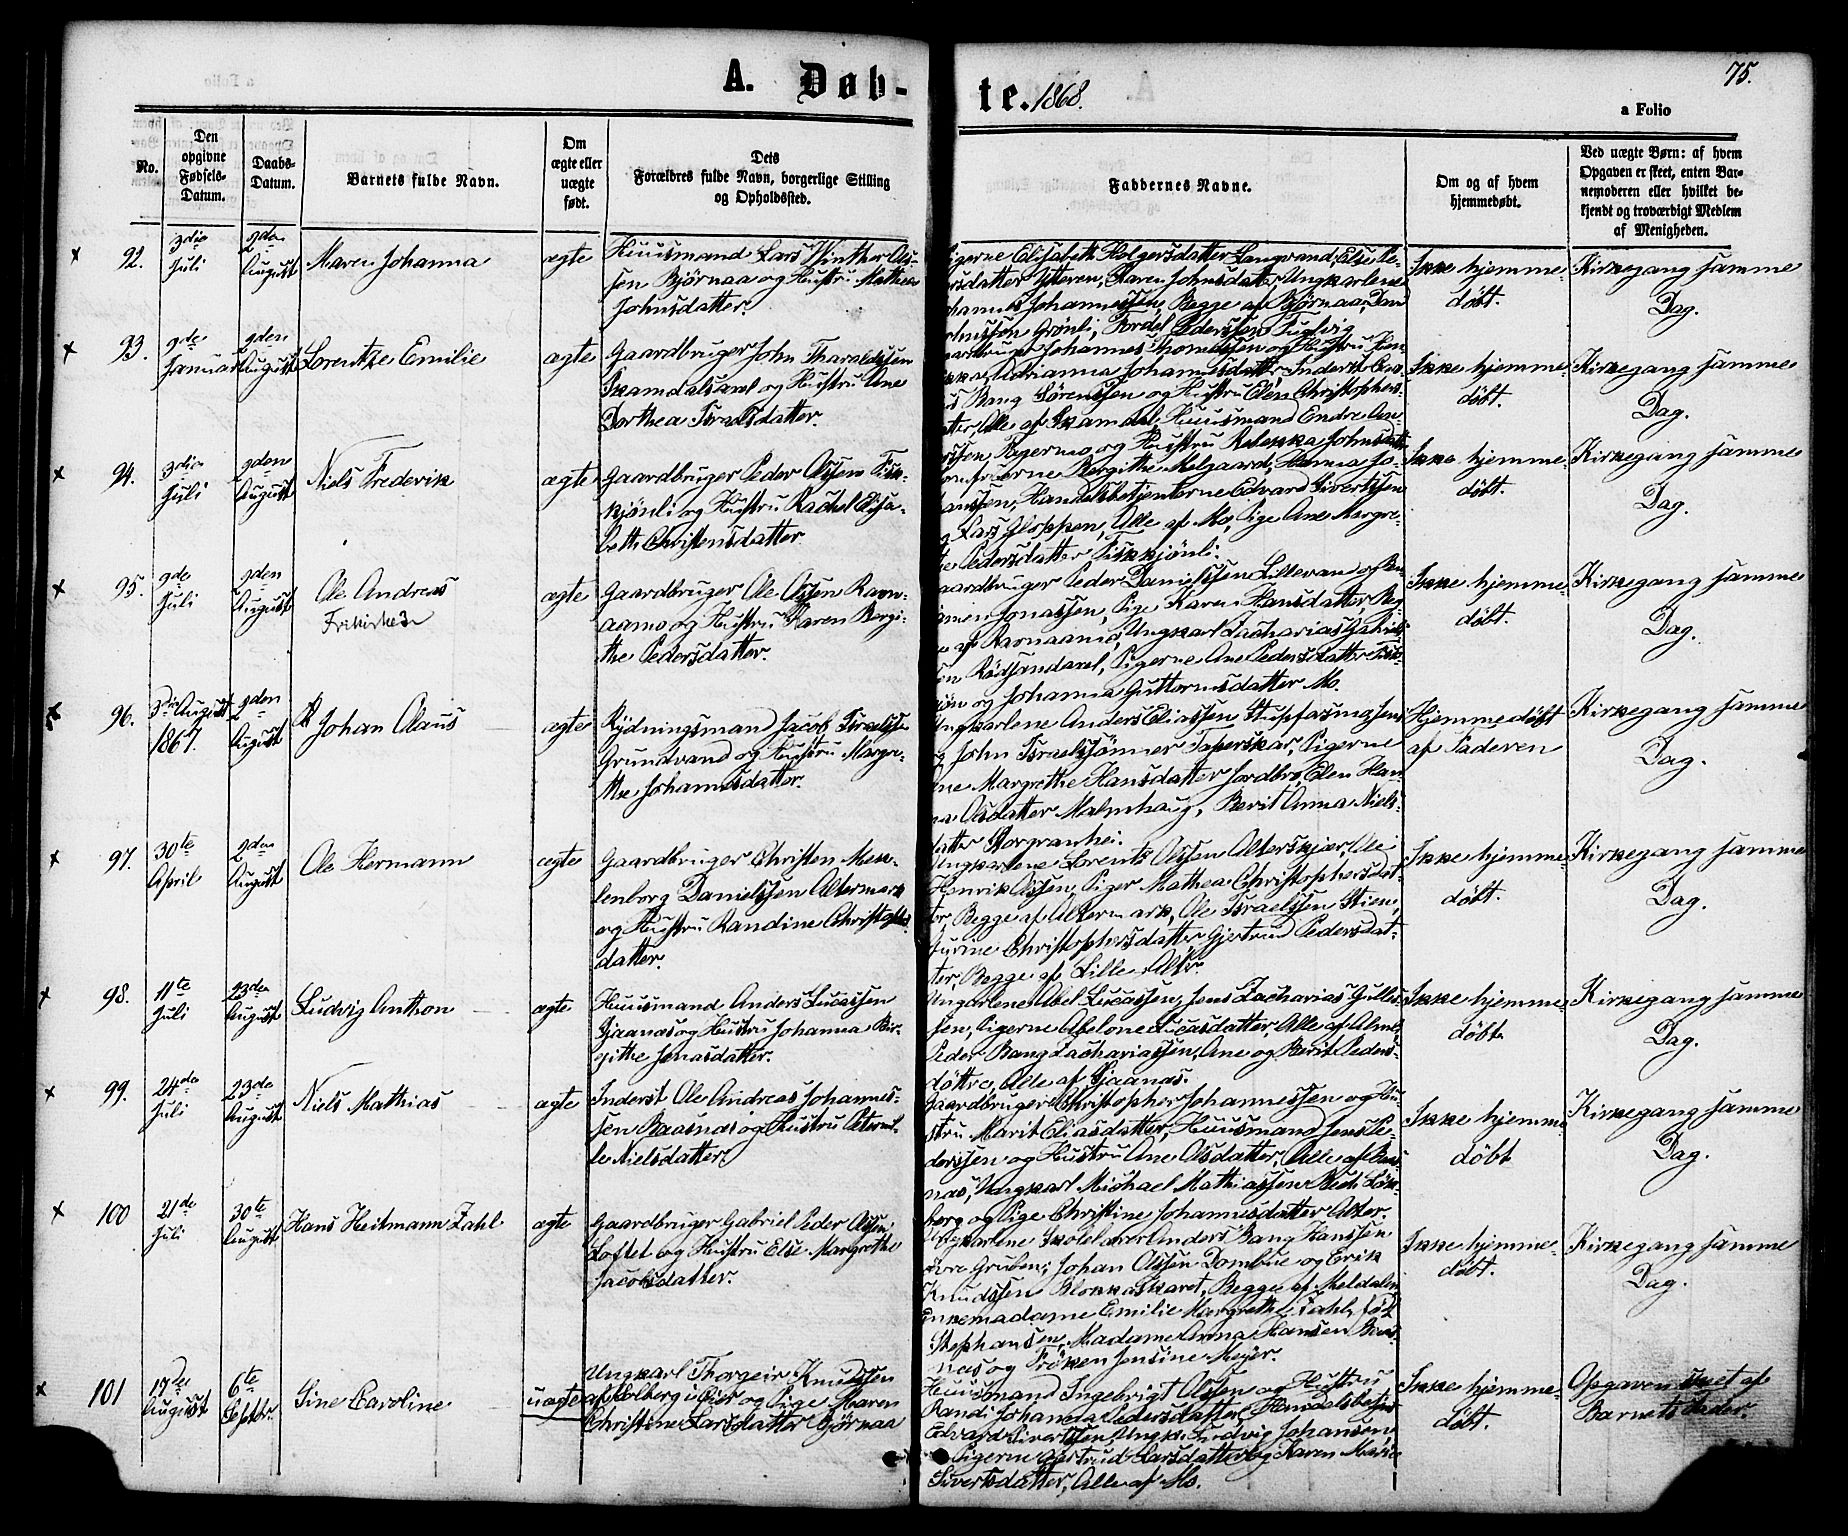 75.
A. Døb-
te. 1868.
a Folio
No.
Den
opgivne
Fødsels-
Datum.
Daabs-
Datum.
Barnets fulde Navn.
Om
ægte eller
uægte
født.
Dets
Forældres fulde Navn, borgerlige Stilling
og Opholdssted.
Faddernes Navne.
Om og af hvem
hjemmedøbt.
Ved uægte Børn: af hvem
Opgaven er skeet, enten Bar-
nemoderen eller hvilket be-
kjendt og troværdigt Medlem
af Menigheden.
92.
3die
Juli
2den
August
Maren Johanna
ægte
Huusmand Lars Winther Ols-
sen Bjørnaa og Hustru Mathea
Johnsdatter.
Pigerne Elisabeth Holgersdatter Langvand, Else Pe-
ersdatter Ytteren, Karen Johnsdatter, Ungkarlene
Johannes Johannessen, Begge af Bjørnaa, Dan
Johnssøn Grønli, Tordel Pederssøn Fuglvig
Ikke hjemme-
døbt.
Kirkegang samme
Dag.
93.
9de
Januar
2den
August
Lorentze Emilie
ægte
Gaardbruger John Tharaldssen
Skamdalsaxel og Hustru Ane
Dorthea Israelsdatter.
Gaardbruger Johannes Thomassen og Hustru
Adrianna Johannesdatter, Inderst
Bang Sørenssen og Hustru Elen Christophers-
datter, Alle af Skamdal, Huusmand Endre An-
Ikke hjemme-
døbt.
Kirkegang samme
Dag.
94.
3die
Juli
2den
August
Niels Frederik
ægte
Gaardbruger Peder Olssen Fisk-
kjønli og Hustru Rachel Elisa-
beth Christensdatter.
og Hustru Rebekka Johnsdatter
Jomfruerne Bergithe Melgaard, Hanna Jo-
hanssen, Handelsbetjenterne Edvard Sivertssen
og Lars Gloppen, Alle af Mo, Pige Ane Margre-
the Pedersdatter Fiskkjønli.
Ikke hjemme-
døbt.
Kirkegang samme
Dag.
95.
9de
Juli
2den
August
Ole Andreas
Frikirke
ægte
Gaardbruger Ole Olssen Ravn-
aamo og Hustru Karen Bergi-
the Pedersdatter.
Gaardbruger Peder Danielssen Lillevand og Ben-
jamin Jonassen, Pige Karen Hansdatter, Beg-
ge af Ravnaamo, Ungkarl Zacharias Gabriels-
sen Rødsandaxel, Pigerne Ane Pedersdatter Fisk-
kjøn og Johanna Guttormsdatter Mo.
Ikke hjemme-
døbt.
Kirkegang samme
Dag.
96.
3die August
1867.
2den
August
Johan Olaus
ægte
Rydningsmand Jacob Israelssen
Grundvand og Hustru Margre-
the Johannesdatter.
Ungkarlene Anders Eliassen
og John Israelssønner Taperskar, Pigerne
Ane Margrethe Hansdatter Jordbro, Elen Han-
na Olsdatter Malmhaug, Berit Anna Niels-
datter Storgranhei.
Hjemmedøbt
af Faderen
Kirkegang samme
Dag.
97.
30te
April
2den
August
Ole Hermann
ægte
Gaardbruger Christen Mek-
lenborg Danielssen Altermark
og Hustru Randine Christophers-
datter.
Ungkarlene Lorents Olssen Alterskjær, Ole
Henrik Olssen, Piger Mathea Christophersdat-
ter, Begge af Altermark, Ole Israelssen Stien,
Jurine Christophersdatter, Gjertrud Pedersdat-
ter, Begge af Lille Alter.
Ikke hjemme-
døbt.
Kirkegang samme
Dag.
98.
11te
Juli
23de
August
Ludvig Anthon
ægte
Huusmand Anders Lucassen
Sjaanæs og Hustru Johanna Bir-
gitthe Jonasdatter.
Ungkarlene Abel Lucassen, Jens Zacharias Gulles-
sen, Pigerne Abelone Lucasdatter, Alle af Alnes,
Peder Bang Zachariassen, Ane og Berit Peders-
døttre, Alle af Sjaanæs.
Ikke hjemme-
døbt
Kirkegang samme
Dag.
99.
24de
Juli
23de
August
Niels Mathias
ægte
Inderst Ole Andreas Johannes-
sen Baasnæs og Hustru Peternil-
le Nielsdatter
Gaardbruger Christopher Johannessen og Hu-
stru Marit Eliasdatter, Huusmand Jens Pe-
derssen og Hustru Ane Olsdatter, Alle af Baas-
næs, Ungkarl Michael Mathiassen
og Pige Christine Johannesdatter Alter.
Ikke hjemme-
døbt
Kirkegang samme
Dag.
100
21de
Juli
30te
August
Hans Heitmann Zahl
ægte
Gaardbruger Gabriel Peder Olssen
Loftet og Hustru Else Margrethe
Jacobsdatter.
Ungkarlene Skolelærer Anders Bang Hanssen
Gruben, Johan Olssen Dombue og Erik
Knudssen Blokkaskaret, Begge af Meldalen
Enkemadame Emilie Margrethe Zahl, født
Stephansen, Madame Anna Hansen Baas-
næs og Frøken Jensine Meyer.
Ikke hjemme-
døbt.
Kirkegang samme
Dag.
101
17de
August
6te
Septbr.
Sine Caroline
uægte
Ungkarl Thorgeir Knudssen
og Pige Maren
Christine Larsdatter Bjørnaa
Huusmand Ingebrigt Olssen og Hustru
Randi Johanna Pedersdatter, Handelsbetjent
Edvard Sivertssen, Ungk. Ludvig Johansen,
Pigerne Gjertrud Larsdatter og Karen Marie
Sivertsdatter, Alle af Mo.
Ikke hjemme-
døbt.
Opgaven skeet af
Barnets Fader.